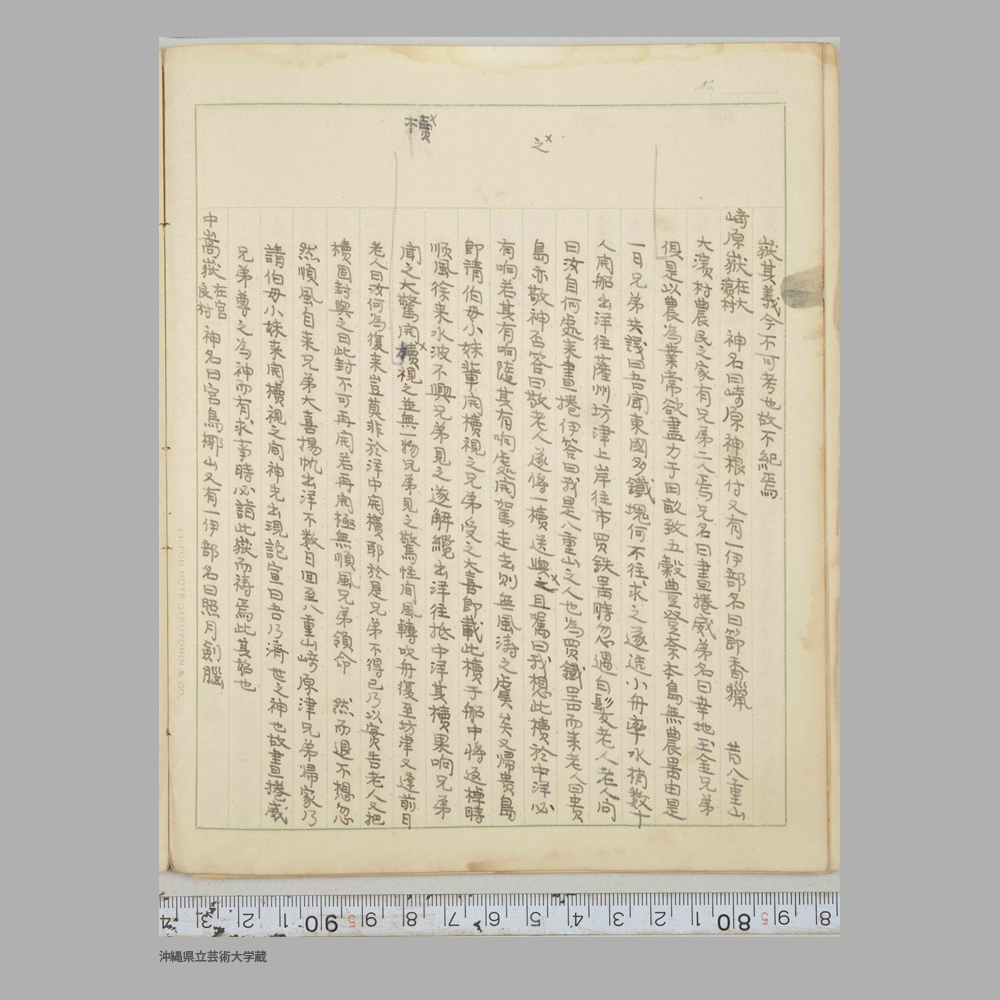 No.
櫝×
之×
嶽其義今不可考也故不紀焉
﨑原嶽在大濱村 神名曰﨑原神根付又有一伊部名曰節香獵 昔八重山
大濱村農民之家有兄弟二人焉兄名曰晝捲威弟名曰幸地玉金兄弟
俱是以農為業常欲盡力于田畝致五穀豊登奈本島無農噐由是
一日兄弟共議曰吾聞東國多鐵塊何不往求之遂造小舟率水梢数十
人開船出洋往薩州坊津上岸往市買鉄噐時忽遇白髮老人老人向
曰汝自何處来晝捲伊答曰我是八重山之人也為買鐵噐而来老人曰貴
島亦敬神否答曰敬老人遂将一櫝送與之×且嘱曰我想此櫝於中洋必
有响若其有响隨其有响處開駕走去則無風濤之虞矣又帰貴島
即請伯母小妹輩開櫝視之兄弟受之大喜即載此櫝于船中将返棹時
順風徐来水波不興兄弟見之遂解纜出洋往抵中洋其櫝果响兄弟
聞之大驚開櫝×視之並無一物兄弟見之驚怪间風轉吹舟復至坊津又逢前日
老人曰汝何為復来豈莫非於洋中開櫝耶於是兄弟不得已乃以實告老人又把
櫝固封與之曰此封不可再開若再開極無順風兄弟領命 然而退不想忽
然順風自来兄弟大喜揚帆出洋不数日回至八重山﨑原津兄弟帰家乃
請伯母小妹来開櫝視之间神光出現託宣曰吾乃済世之神也故晝捲威
兄弟尊之為神而有求事時必詣此嶽而祷焉此其始也
中嵩嶽在宮良村 神名曰宮鳥椰山又有一伊部名曰照月剣腦
沖縄県立芸術大学蔵